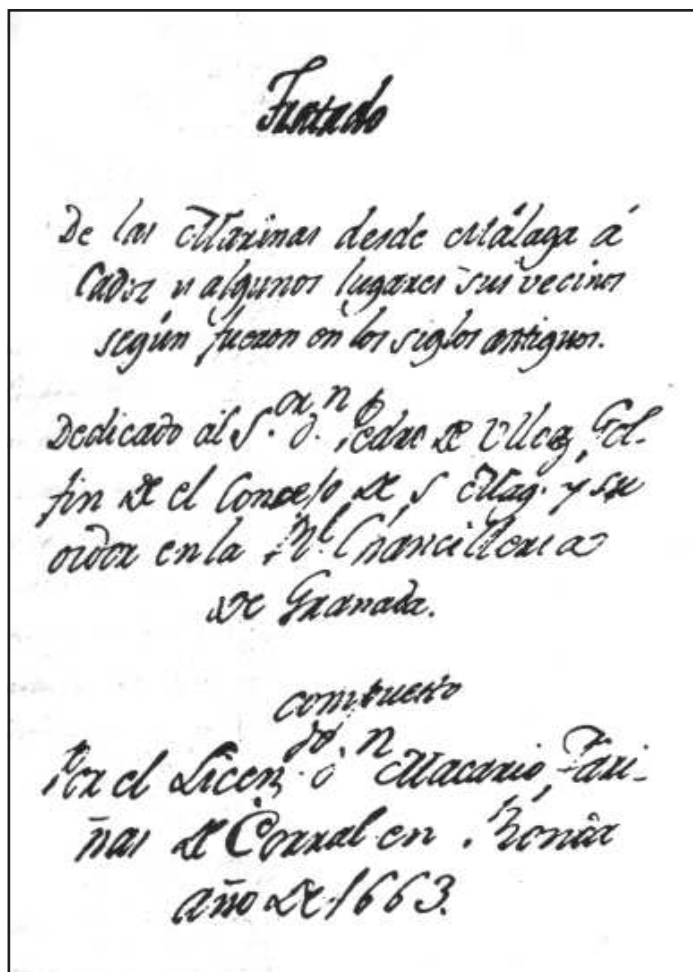 Tratado
De las Marinas desde Málaga á
Cadiz y algunos lugares sus vecinos
según fueron en los siglos antiguos.
Dedicado al S.or D.n Pedro de Ulloa, Gol-
fin de el Consejo de S Mag. y su
oidor en la Rl. Chancilleria
de Granada.
compuesto
Por el Licen.do D.n Macario Fari-
ñas de Corral en Ronda
año de 1663.